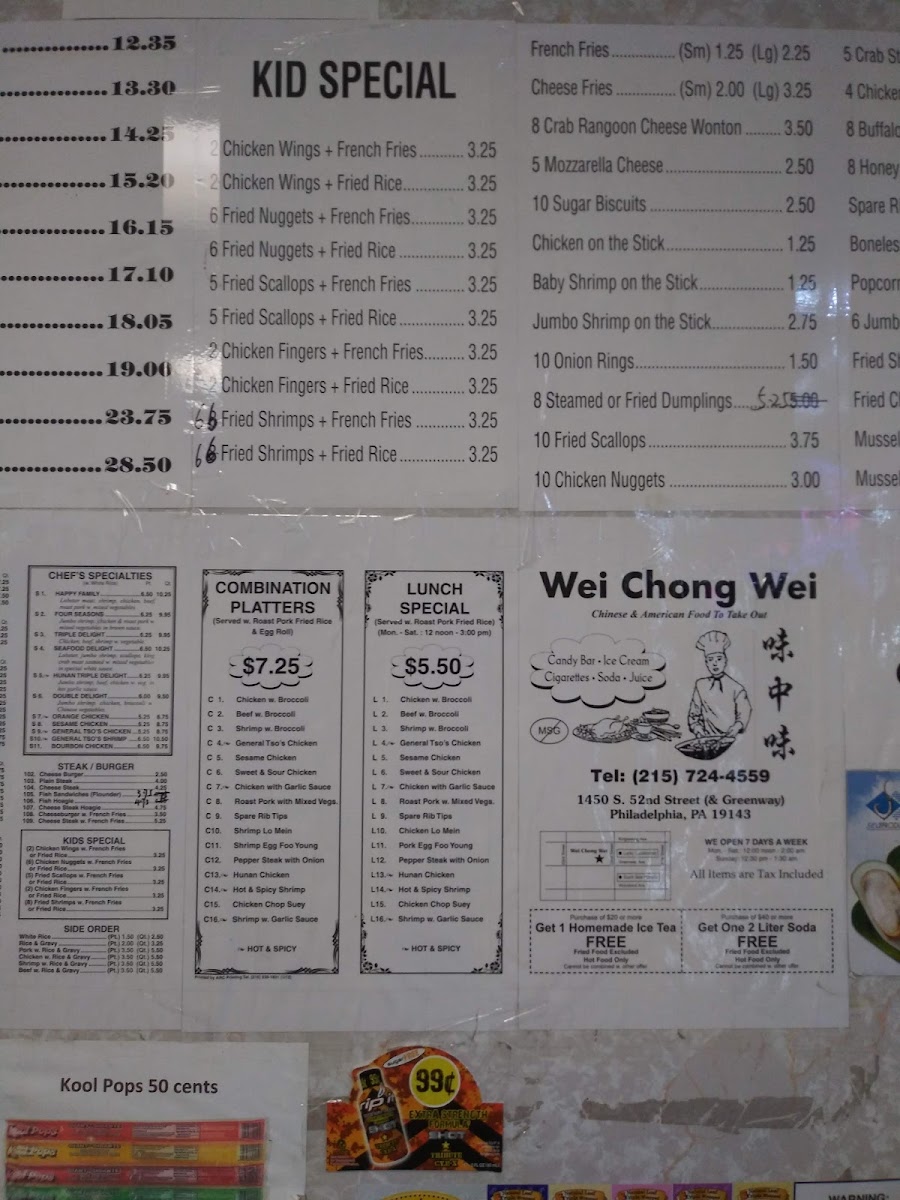 12.35
13.30
14.25
15.20
16.15
17.10
18.05
19.00
23.75
28.50
KID SPECIAL
2 Chicken Wings + French Fries 3.25
2 Chicken Wings + Fried Rice 3.25
6 Fried Nuggets + French Fries 3.25
6 Fried Nuggets + Fried Rice 3.25
5 Fried Scallops + French Fries 3.25
5 Fried Scallops + Fried Rice 3.25
2 Chicken Fingers + French Fries 3.25
2 Chicken Fingers + Fried Rice 3.25
6 Fried Shrimps + French Fries 3.25
6 Fried Shrimps + Fried Rice 3.25
French Fries (Sm) 1.25 (Lg) 2.25
Cheese Fries (Sm) 2.00 (Lg) 3.25
8 Crab Rangoon Cheese Wonton 3.50
5 Mozzarella Cheese 2.50
10 Sugar Biscuits 2.50
Chicken on the Stick 1.25
Baby Shrimp on the Stick 1.25
Jumbo Shrimp on the Stick 2.75
10 Onion Rings 1.50
8 Steamed or Fried Dumplings 5.25 5.00
10 Fried Scallops 3.75
10 Chicken Nuggets 3.00
5 Crab
4 Chicken
8 Buffalo
8 Honey
Spare
Boneless
Popcorn
6 Jumb
Fried
Fried
Mussel
Mussel
CHEF'S SPECIALTIES
(w. White Rice) Pt. Qt.
S 1. HAPPY FAMILY 6.50 10.25
Lobster meat, shrimp, chicken, beef,
roast pork w. mixed vegetables
S 2. FOUR SEASONS 6.25 9.95
Jumbo shrimp, chicken & roast pork w.
mixed vegetables in brown sauce
S 3. TRIPLE DELIGHT 6.25 9.95
Chicken, beef, shrimp w. vegetable
S 4. SEAFOOD DELIGHT 6.50 10.25
Lobster, jumbo shrimp, scallops, king
crab meat sauteed w. mixed vegetables
in special white sauce
S 5. HUNAN TRIPLE DELIGHT 6.25 9.95
Jumbo shrimp, beef, chicken w. veg. in
hot garlic sauce
S 6. DOUBLE DELIGHT 6.00 9.50
Jumbo shrimp, chicken, broccoli w.
Chinese vegetables
S 7. ORANGE CHICKEN 5.25 8.75
S 8. SESAME CHICKEN 5.25 8.75
S 9. GENERAL TSO'S CHICKEN 5.25 8.75
S10. GENERAL TSO'S SHRIMP 6.50 10.50
S11. BOURBON CHICKEN 5.50 8.75
STEAK / BURGER
102. Cheese Burger 2.50
103. Plain Steak 4.00
104. Cheese Steak 4.25
105. Fish Sandwiches (Flounder)
106. Fish Hoagie
107. Cheese Steak Hoagie 4.75
108. Cheeseburger w. French Fries 3.50
109. Cheese Steak w. French Fries 5.25
KIDS SPECIAL
(2) Chicken Wings w. French Fries
or Fried Rice 3.25
(6) Chicken Nuggets w. French Fries
or Fried Rice 3.25
(5) Fried Scallops w. French Fries
or Fried Rice 3.25
(2) Chicken Fingers w. French Fries
or Fried Rice 3.25
(8) Fried Shrimps w. French Fries
or Fried Rice 3.25
SIDE ORDER
White Rice (Pt.) 1.50 (Qt.) 2.50
Rice & Gravy (Pt.) 2.00 (Qt.) 3.25
Pork w. Rice & Gravy (Pt.) 3.50 (Qt.) 5.50
Chicken w. Rice & Gravy (Pt.) 3.50 (Qt.) 5.50
Shrimp w. Rice & Gravy (Pt.) 3.50 (Qt.) 5.50
Beef w. Rice & Gravy (Pt.) 3.50 (Qt.) 5.50
COMBINATION
PLATTERS
(Served w. Roast Pork Fried Rice
& Egg Roll)
$7.25
C 1. Chicken w. Broccoli
C 2. Beef w. Broccoli
C 3. Shrimp w. Broccoli
C 4. General Tso's Chicken
C 5. Sesame Chicken
C 6. Sweet & Sour Chicken
C 7. Chicken with Garlic Sauce
C 8. Roast Pork with Mixed Vegs.
C 9. Spare Rib Tips
C10. Shrimp Lo Mein
C11. Shrimp Egg Foo Young
C12. Pepper Steak with Onion
C13. Hunan Chicken
C14. Hot & Spicy Shrimp
C15. Chicken Chop Suey
C16. Shrimp w. Garlic Sauce
HOT & SPICY
LUNCH
SPECIAL
(Served w. Roast Pork Fried Rice)
(Mon. - Sat. : 12 noon - 3:00 pm)
$5.50
L 1. Chicken w. Broccoli
L 2. Beef w. Broccoli
L 3. Shrimp w. Broccoli
L 4. General Tso's Chicken
L 5. Sesame Chicken
L 6. Sweet & Sour Chicken
L 7. Chicken with Garlic Sauce
L 8. Roast Pork w. Mixed Vegs.
L 9. Spare Rib Tips
L10. Chicken Lo Mein
L11. Pork Egg Foo Young
L12. Pepper Steak with Onion
L13. Hunan Chicken
L14. Hot & Spicy Shrimp
L15. Chicken Chop Suey
L16. Shrimp w. Garlic Sauce
HOT & SPICY
Wei Chong Wei
Chinese & American Food To Take Out
Candy Bar • Ice Cream
Cigarettes • Soda • Juice
MSG
味
中
味
Tel: (215) 724-4559
1450 S. 52nd Street (& Greenway)
Philadelphia, PA 19143
Wei Chong Wei
WE OPEN 7 DAYS A WEEK
All Items are Tax Included
Purchase of $20 or more
Get 1 Homemade Ice Tea
FREE
Fried Food Excluded
Hot Food Only
Cannot be combined w. other offer
Purchase of $40 or more
Get One 2 Liter Soda
FREE
Fried Food Excluded
Hot Food Only
Cannot be combined w. other offer
Kool Pops 50 cents
Kool Pops
Kool Pops
Kool Pops
99¢
rip it
SHOT
EXTRA STRENGTH
FORMULA
SHOT
TRIBUTE
WARNING: